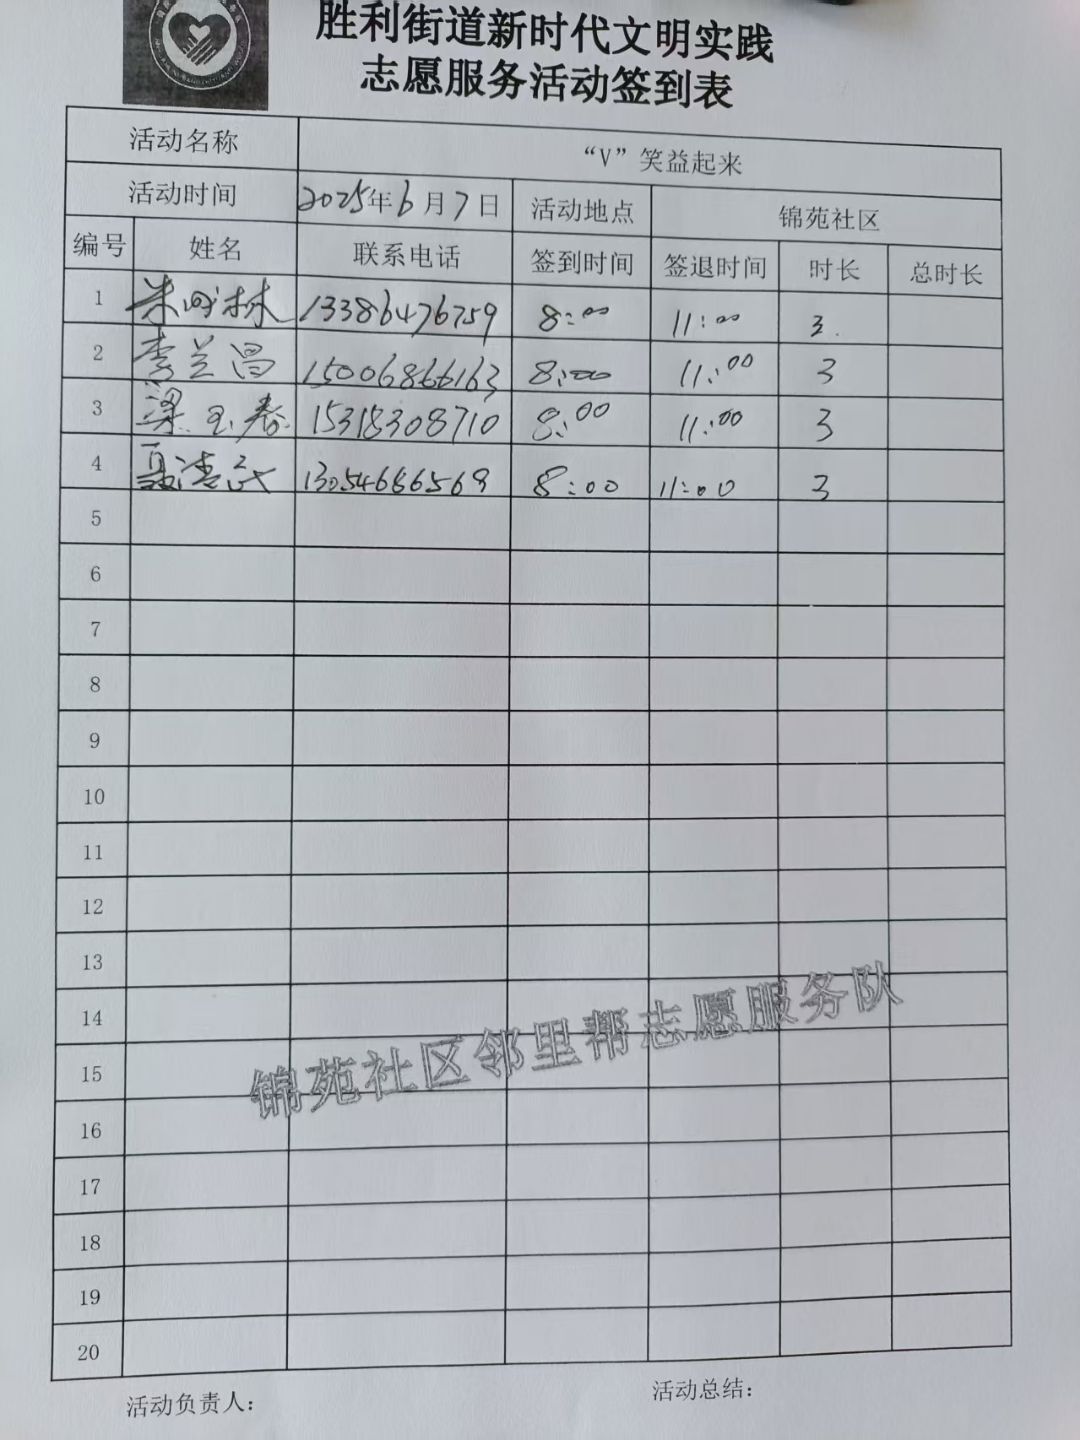 胜利街道新时代文明实践
志愿服务活动签到表
活动名称 “V”笑益起来
活动时间 2025年6月7日 活动地点 锦苑社区
编号 姓名 联系电话 签到时间 签退时间 时长 总时长
1 13386476759 8:00 11:00 3.
2 李兰昌 15006866163 8:00 11:00 3
3 梁玉春 15315308710 8:00 11:00 3
4 13054686569 8:00 11:00 3
5
6
7
8
9
10
11
12
13
14
15
16
17
18
19
20
锦苑社区邻里帮志愿服务队
活动负责人: 活动总结: